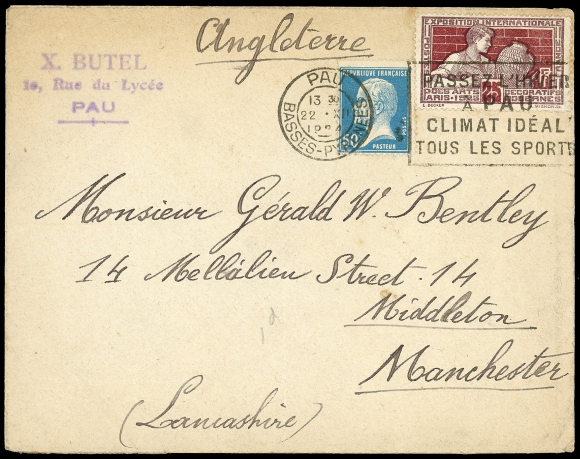 Angleterre
X. BUTEL
19, Rue du Lycée
PAU
PAU
13 30
22 XII
1924
BASSES-PYRÉNÉES
RÉPUBLIQUE FRANÇAISE
POSTES
PASTEUR
EXPOSITION INTERNATIONALE
ARTS DÉCORATIFS
PARIS-1925 MODERNES
25
POSTES
PASSEZ L'HIVER
À PAU
CLIMAT IDÉAL
TOUS LES SPORTS
Monsieur Gérald W. Bentley
14 Mellálien Street. 14
Middleton
Manchester
(Lancashire)
1d